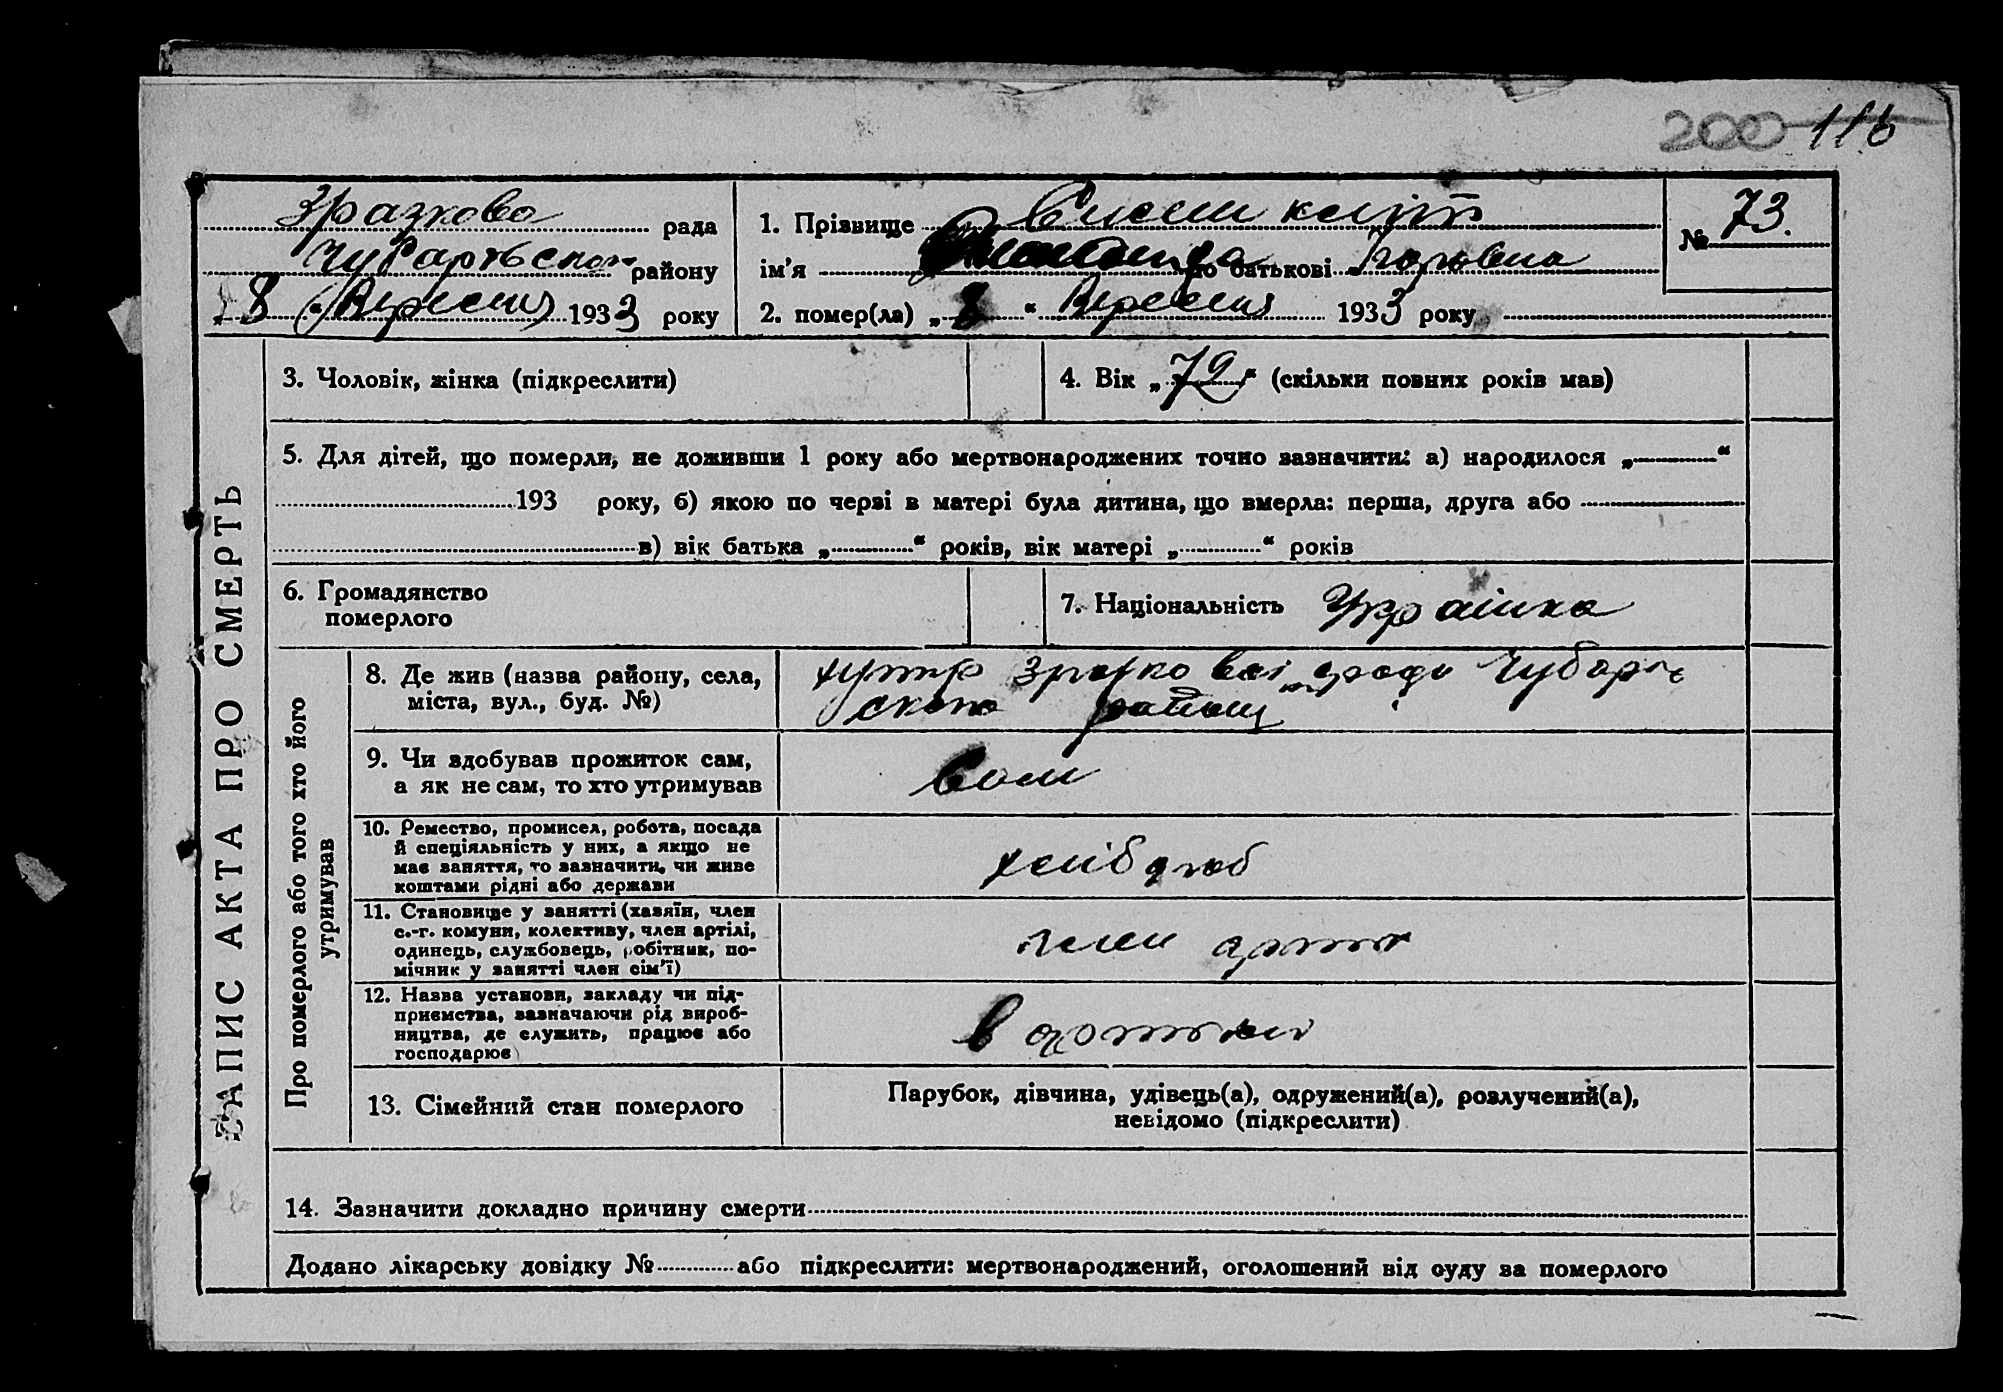 200 116
Зразкова рада
Чубарівського району
„8“ Вересня 1933 року
1. Прізвище
ім’я по батькові
2. помер(ла) „8“ Вересня 1933 року
№ 73.
ЗАПИС АКТА ПРО СМЕРТЬ
3. Чоловік, жінка (підкреслити)
4. Вік „72“ (скільки повних років мав)
5. Для дітей, що померли, не доживши 1 року або мертвонароджених точно зазначити: а) народилося „ “
193 року, б) якою по черзі в матері була дитина, що вмерла: перша, друга або
в) вік батька „ “ років, вік матері „ “ років
6. Громадянство
померлого
7. Національність Українка
Про померлого або того хто його
утримував
8. Де жив (назва району, села,
міста, вул., буд. №)
хутір Зразково ради Чубарів
ського району
9. Чи здобував прожиток сам,
а як не сам, то хто утримував
Сам
10. Ремество, промисел, робота, посада
й спеціяльність у них, а якщо не
має заняття, то зазначити, чи живе
коштами рідні або держави
хлібороб
11. Становище у занятті (хазяїн, член
с.-г. комуни, колективу, член артілі,
одинець, службовець, робітник, по-
мічник у занятті член сім’ї)
член артілі
12. Назва установи, закладу чи під-
приємства, зазначаючи рід вироб-
ництва, де служить, працює або
господарює
в артілі
13. Сімейний стан померлого
Парубок, дівчина, удівець(а), одружений(а), розлучений(а),
невідомо (підкреслити)
14. Зазначити докладно причину смерти
Додано лікарську довідку № або підкреслити: мертвонароджений, оголошений від суду за померлого